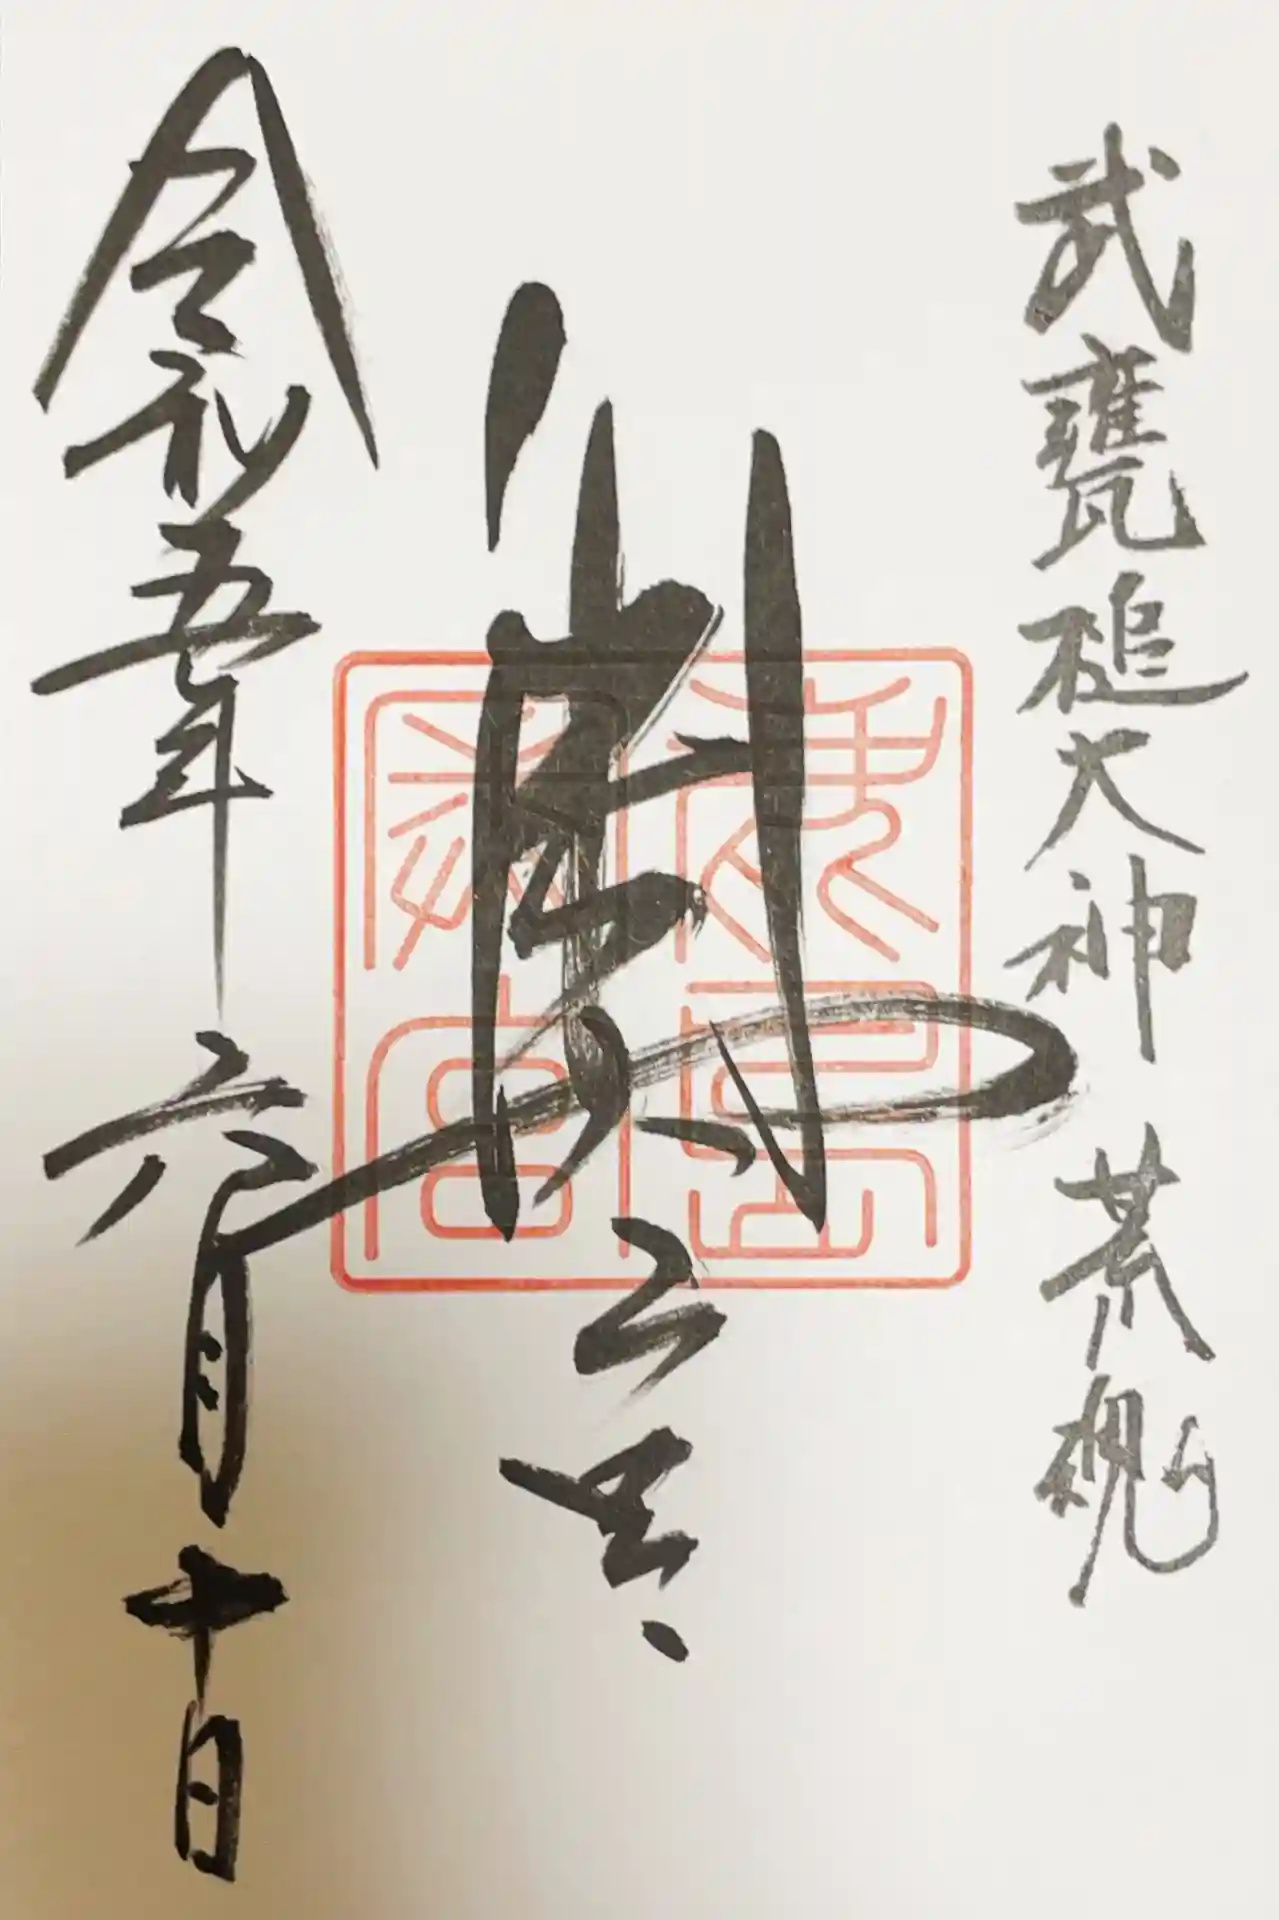 武甕槌大神 荒魂
奥宮
令和五年六月十日